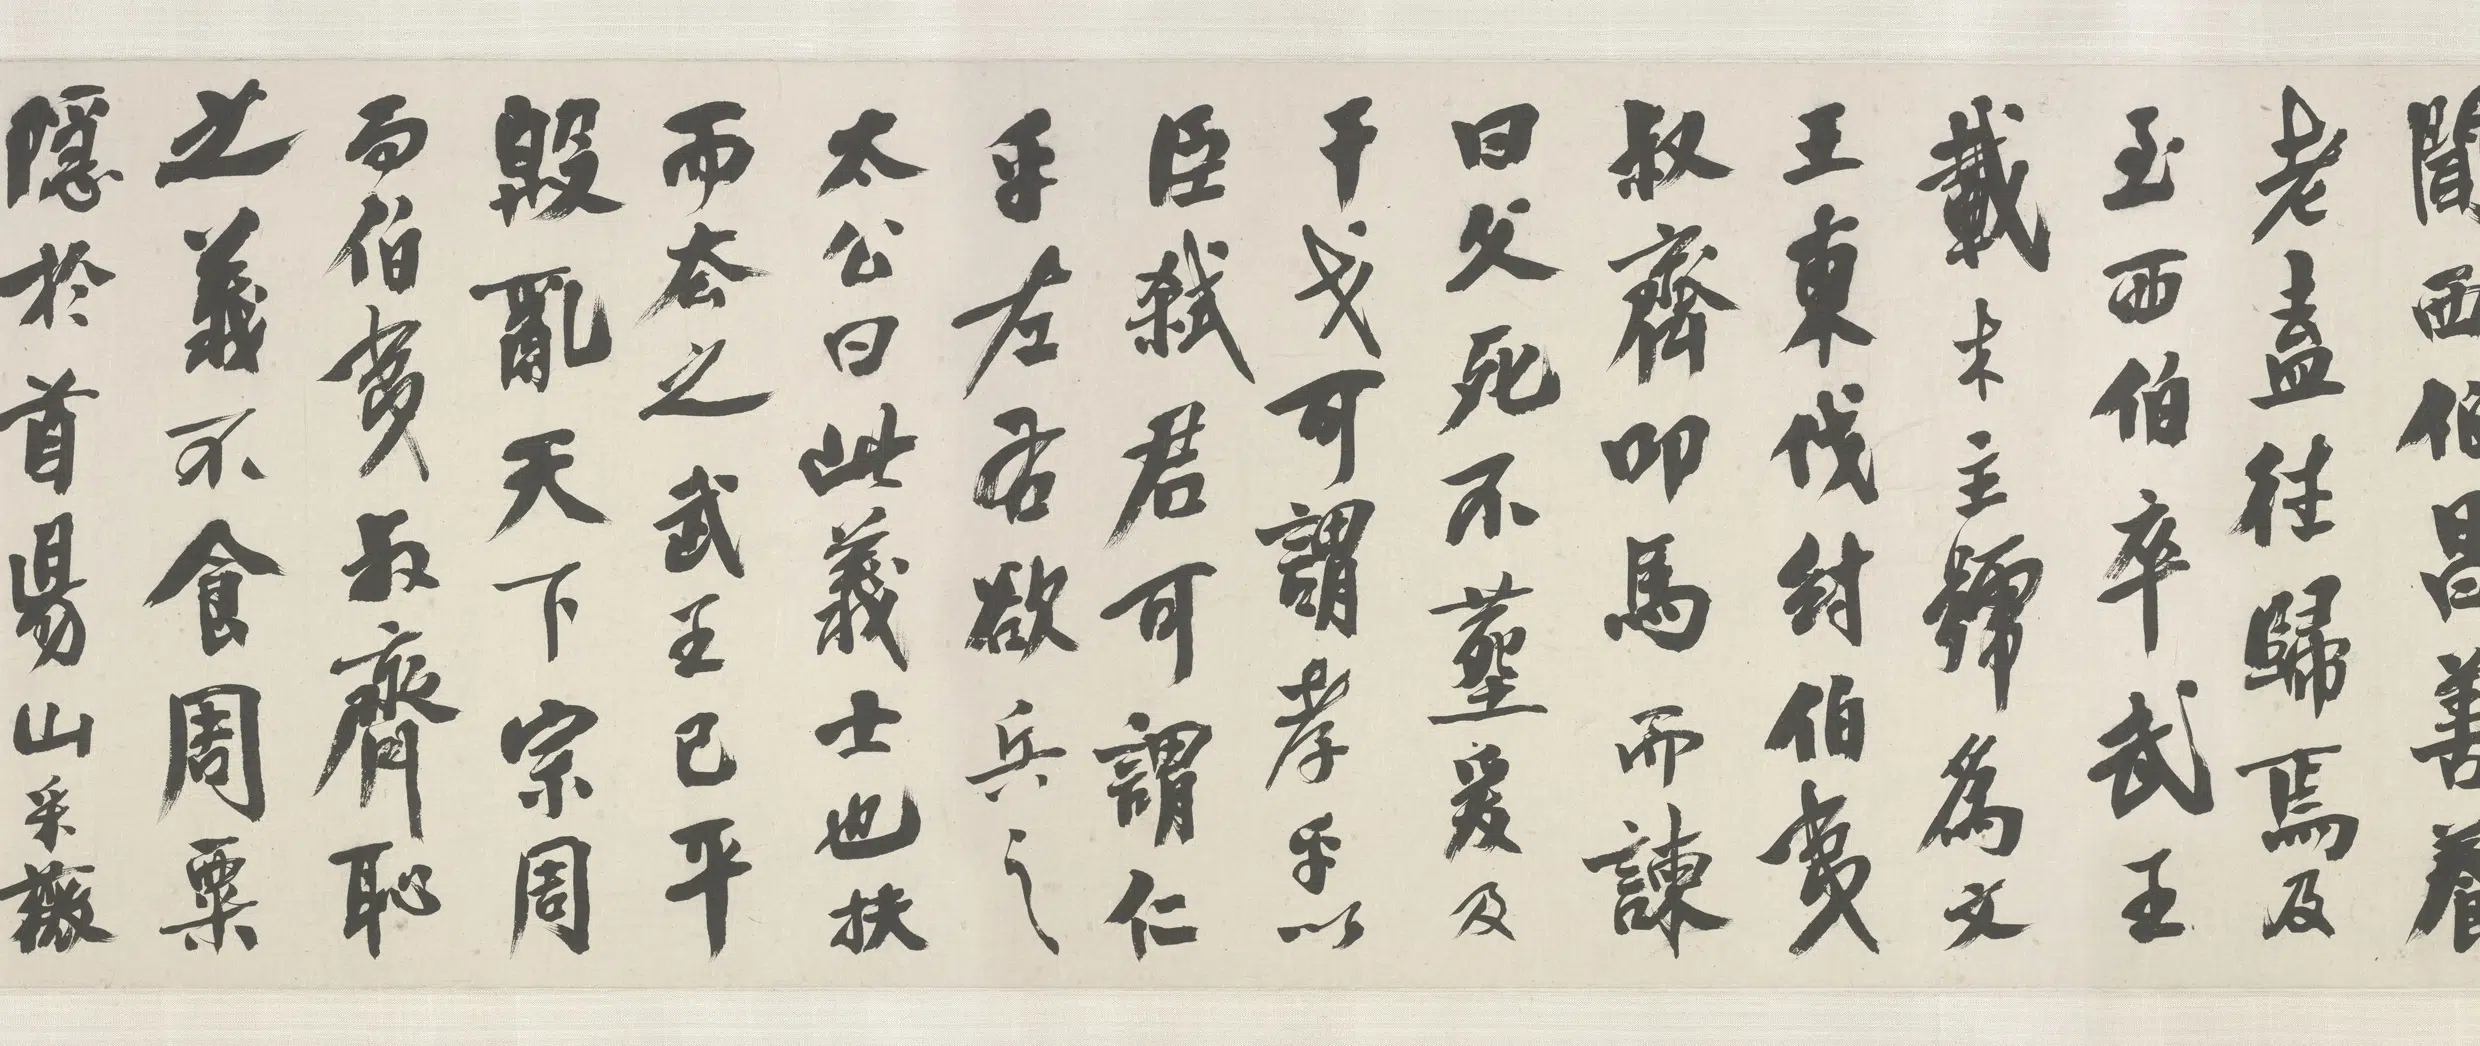 聞西伯昌善養
老盍往歸焉及
至西伯卒武王
載木主號為文
王東伐紂伯夷
叔齊叩馬而諫
曰父死不葬爰及
干戈可謂孝乎以
臣弒君可謂仁
乎左右欲兵之
太公曰此義士也扶
而去之武王已平
殷亂天下宗周
而伯夷叔齊恥
之義不食周粟
隱於首陽山采薇